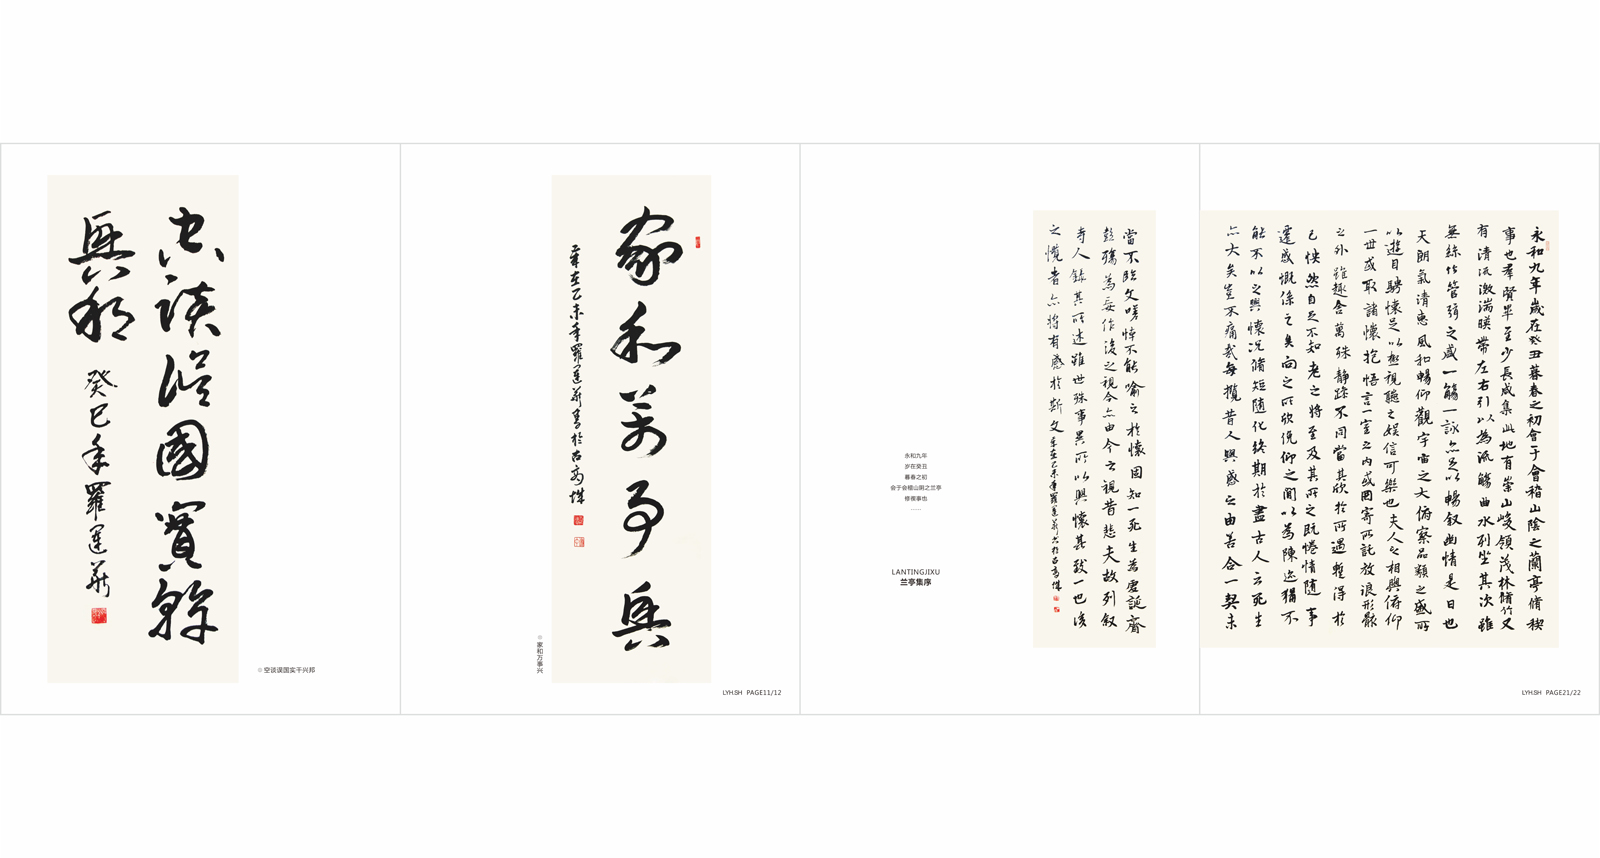 空談誤國實幹
興邦
癸巳年羅運
○ 空谈误国实干兴邦
家和萬事興
歲在乙未年羅運 書於古高
○ 家和万事兴
LYH.SH PAGE11/12
永和九年
岁在癸丑
暮春之初
会于会稽山阴之兰亭
修禊事也
……
LANTINGJIXU
兰亭集序
永和九年歲在癸丑暮春之初會于會稽山陰之蘭亭脩禊
事也羣賢畢至少長咸集此地有崇山峻領茂林脩竹又
有清流激湍暎帶左右引以為流觴曲水列坐其次雖
無絲竹管弦之盛一觴一詠亦足以暢叙幽情是日也
天朗氣清惠風和暢仰觀宇宙之大俯察品類之盛所
以遊目騁懷足以極視聽之娛信可樂也夫人之相與俯仰
一世或取諸懷抱悟言一室之内或因寄所託放浪形骸
之外雖趣舍萬殊靜躁不同當其欣於所遇蹔得於
己怏然自足不知老之將至及其所之既惓情隨事
遷感慨係之矣向之所欣俛仰之閒以為陳迹猶不
能不以之興懷況脩短隨化終期於盡古人云死生
亦大矣豈不痛哉每攬昔人興感之由若合一契未
嘗不臨文嗟悼不能喻之於懷固知一死生為虛誕齊
彭殤為妄作後之視今亦由今之視昔悲夫故列叙
時人錄其所述雖世殊事異所以興懷其致一也後
之攬者亦將有感於斯文 歲在乙未年羅運
LYH.SH PAGE21/22